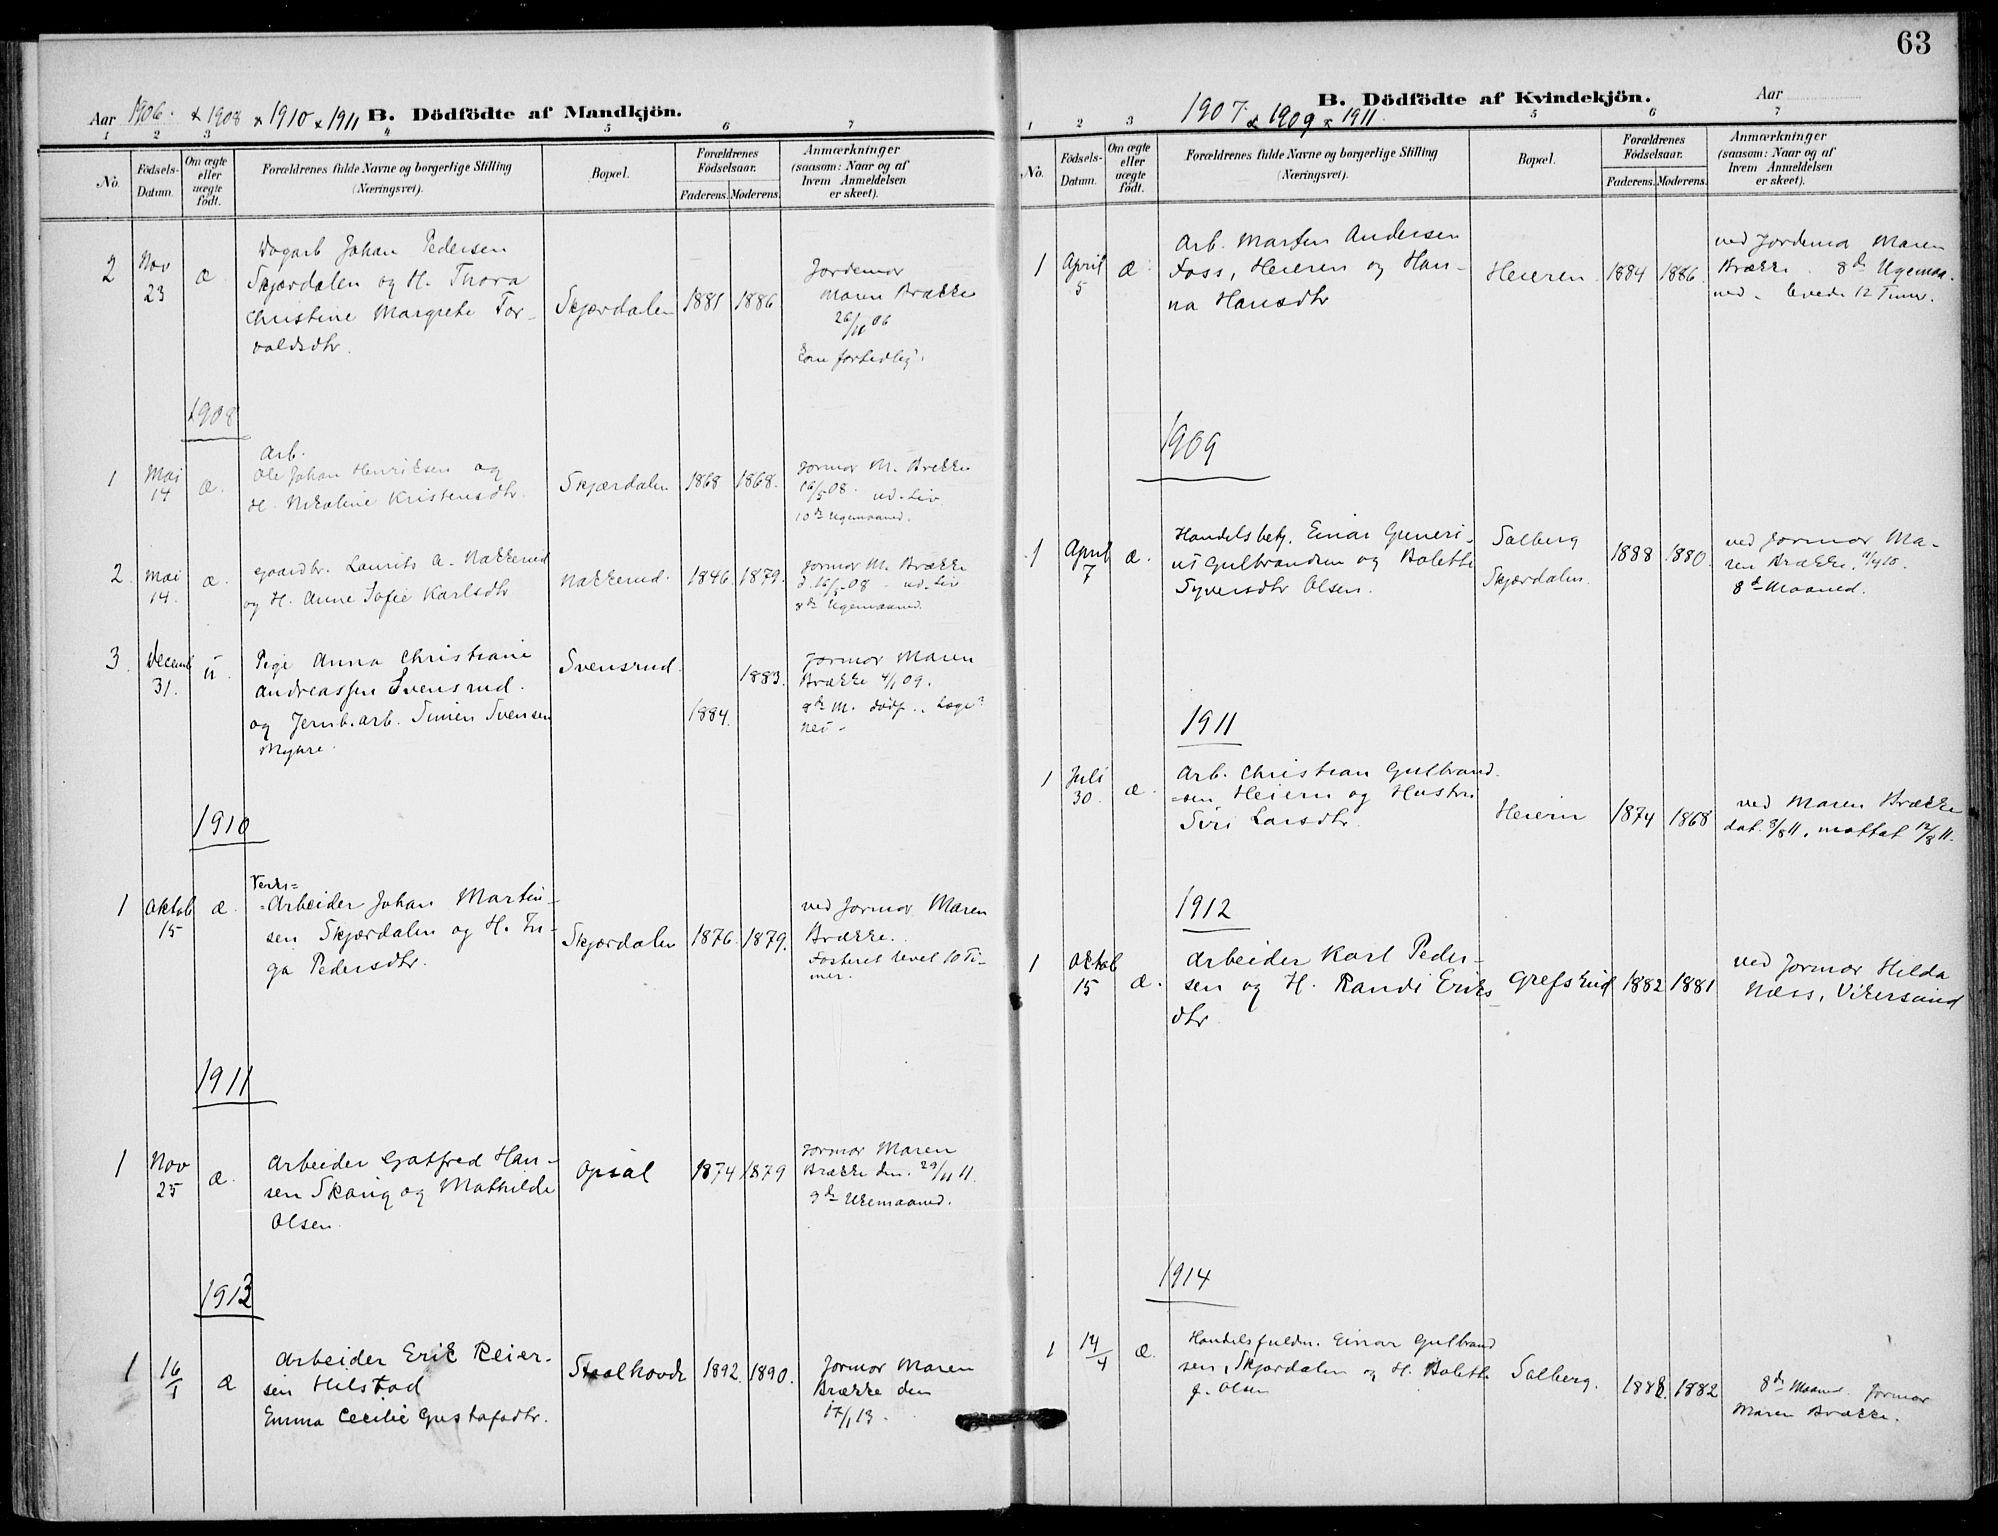 63
Aar 1906. & 1908 & 1910 & 1911 B. Dödfödte af Mandkjön.
1 2 3 4 5 6 7
No.
Födsels-
Datum.
Om ægte
eller
uægte
født.
Forældrenes fulde Navne og borgerlige Stilling
(Næringsvei).
Bopæl.
Forældrenes
Födselsaar.
Faderens. Moderens.
Anmærkninger
(saasom: Naar og af
hvem Anmeldelsen
er skeet).
2
Nov
23
æ
Dagarb Johan Pedersen
Skjærdalen og H. Thora
Christine Margrete Tor-
valdsdtr.
Skjærdalen
1881
1886
Jordemor
Maren Brække
26/11 06
1908
1
Mai
14
æ.
Arb.
Ole Johan Henriksen og
H. Nikoline Kristensdtr.
Skjærdalen
1868
1868.
Jormor M. Brekke
16/5 08. ud. Liv
10de Ugemaaned.
2
Mai
14.
æ.
Gaardbr. Laurits A. Nakkerud
og H. Anne Sofie Karlsdtr
Nakkerud.
1846.
1879.
Jormor M. Brække
d. 16/5-08 - ud. Liv
8de Ugemaaned.
3.
Decemb
31.
u.
Pige Anna Christiane
Andreassen Svensrud.
og Jernb.arb. Simen Svensen
Myhre.
Svensrud.
1884.
1883.
Jormor Maren
Brække 4/1 09.
8de M. dødf. Læge?
Nei -
1910
1
Oktob
15
æ.
Verks=
=Arbeider Johan Martin-
sen Skjærdalen og H. In-
ga Pedersdtr.
Skjærdalen
1876.
1879.
ved Jormor Maren
Brække.
Fosteret levet 10 Ti-
mer.
1911
1
Nov
25
æ.
Arbeider Gotfred Han-
sen Skaug og Mathilde
Olsen.
Opsal
1874
1879
Jormor Maren
Brække den 29/11 11.
9de Ukemaaned.
1913
1
16/1
æ
Arbeider Erik Reier-
sen Hilstad
Emma Cecilie Gustafsdtr.
Staalhovde
1892.
1890.
Jormor Maren
Brække den
17/1 13.
1907. & 1909 & 1911. B. Dödfödte af Kvindekjön. Aar
1 2 3 5 6 7
No.
Födsels-
Datum.
Om ægte
eller
uægte
født.
Forældrenes fulde Navne og borgerlige Stilling
(Næringsvei).
Bopæl.
Forældrenes
Födselsaar.
Faderens. Moderens.
Anmærkninger
(saasom: Naar og af
hvem Anmeldelsen
er skeet).
1
April
5
æ
Arb. Marten Andersen
Foss, Heieren og Han-
na Hansdtr
Heieren
1884
1886.
ved Jordemor Maren
Brække. 8de Ugemaa-
ned. levede 12 Timer.
1909
1
April
7
æ.
Handelsbetj. Einar Guneri-
us Gulbrandsen og Bolette
Syversdtr Olsen.
Solberg
Skjærdalen.
1888
1880.
ved Jormor Ma-
ren Brække.
8de Maaned.
1911
1
Juli
30.
æ.
Arb. Christian Gulbrand-
=sen Heiern og Hustru
Siri Larsdtr.
Heiern
1874
1868
ved Maren Brække
dat. 8/8 11, mottat 12/8 11.
1912
1
Oktob
15
æ.
Arbeider Karl Peder-
sen og H. Randi Eriks-
dtr
Grefsrud
1882
1881
ved Jormor Hilda
Næss, Vikersund
1914
1
14/4
æ.
Handelsfuldm. Einar Gulbrand
sen, Skjærdalen og H. Bolette
f. Olsen
Solberg.
1888
1882
8de Maaned. Jormor
Maren Brække.